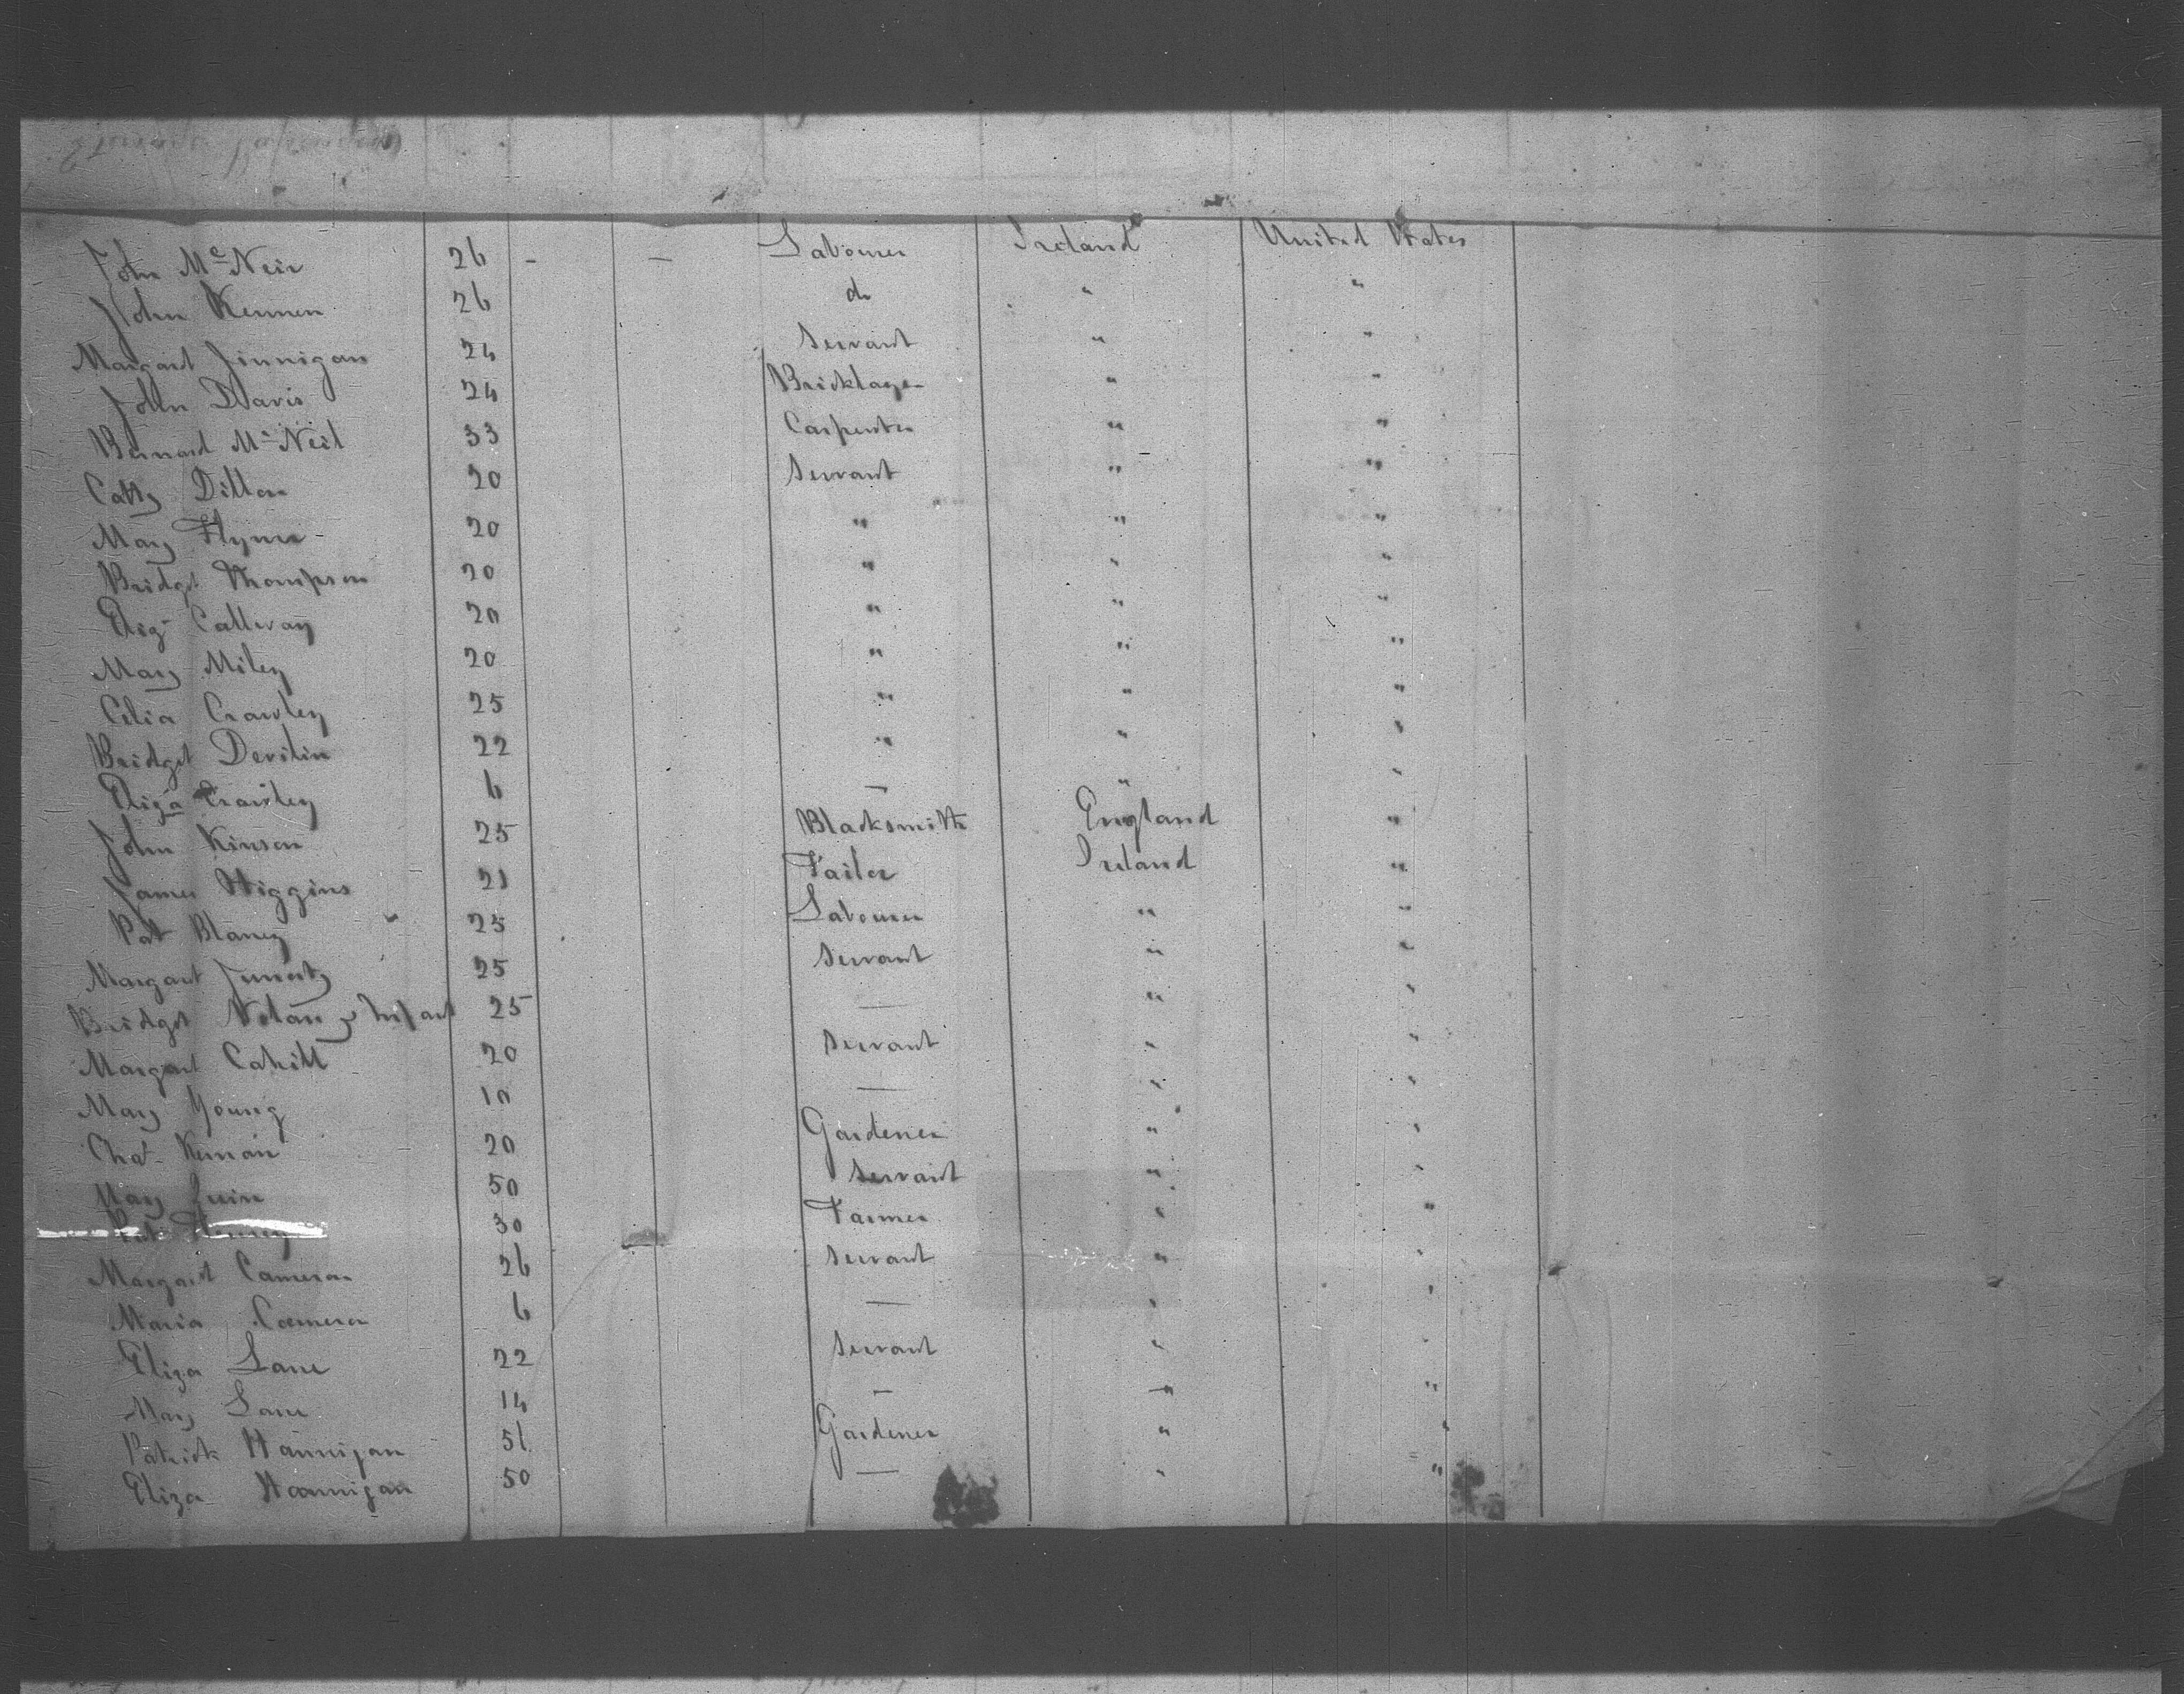 John McNeir 26 - - Labourer Ireland United States
John Kennen 26 do " "
Margaret Finnigan 24 Servant " "
John Davis 24 Bricklayer " "
Bernard McNeil 33 Carpenter " "
Cathy Dillon 20 Servant " "
Mary Flynn 20 " " "
Bridget Thompson 20 " " "
Eliz Callway 20 " " "
Mary Miley 20 " " "
Celia Crawley 25 " " "
Bridget Devilin 22 " " "
Eliza Crawley 6 — " "
John Kinson 25 Blacksmith England "
James Higgins 21 Tailor Ireland "
Pat Blaney 25 Labourer " "
Margaret 25 Servant " "
Bridget Nolan & Infant 25 — " "
Margaret Cahill 20 Servant " "
Mary Young 10 — " "
Chas Kernan 20 Gardener " "
Mary 50 Servant " "
Pat 30 Farmer " "
Margaret Cameron 26 Servant " "
Maria Cameron 6 — " "
Eliza Lane 22 Servant " "
Mary Lane 14 — " "
Patrick Hannigan 51 Gardener " "
Eliza Hannigan 50 — " "